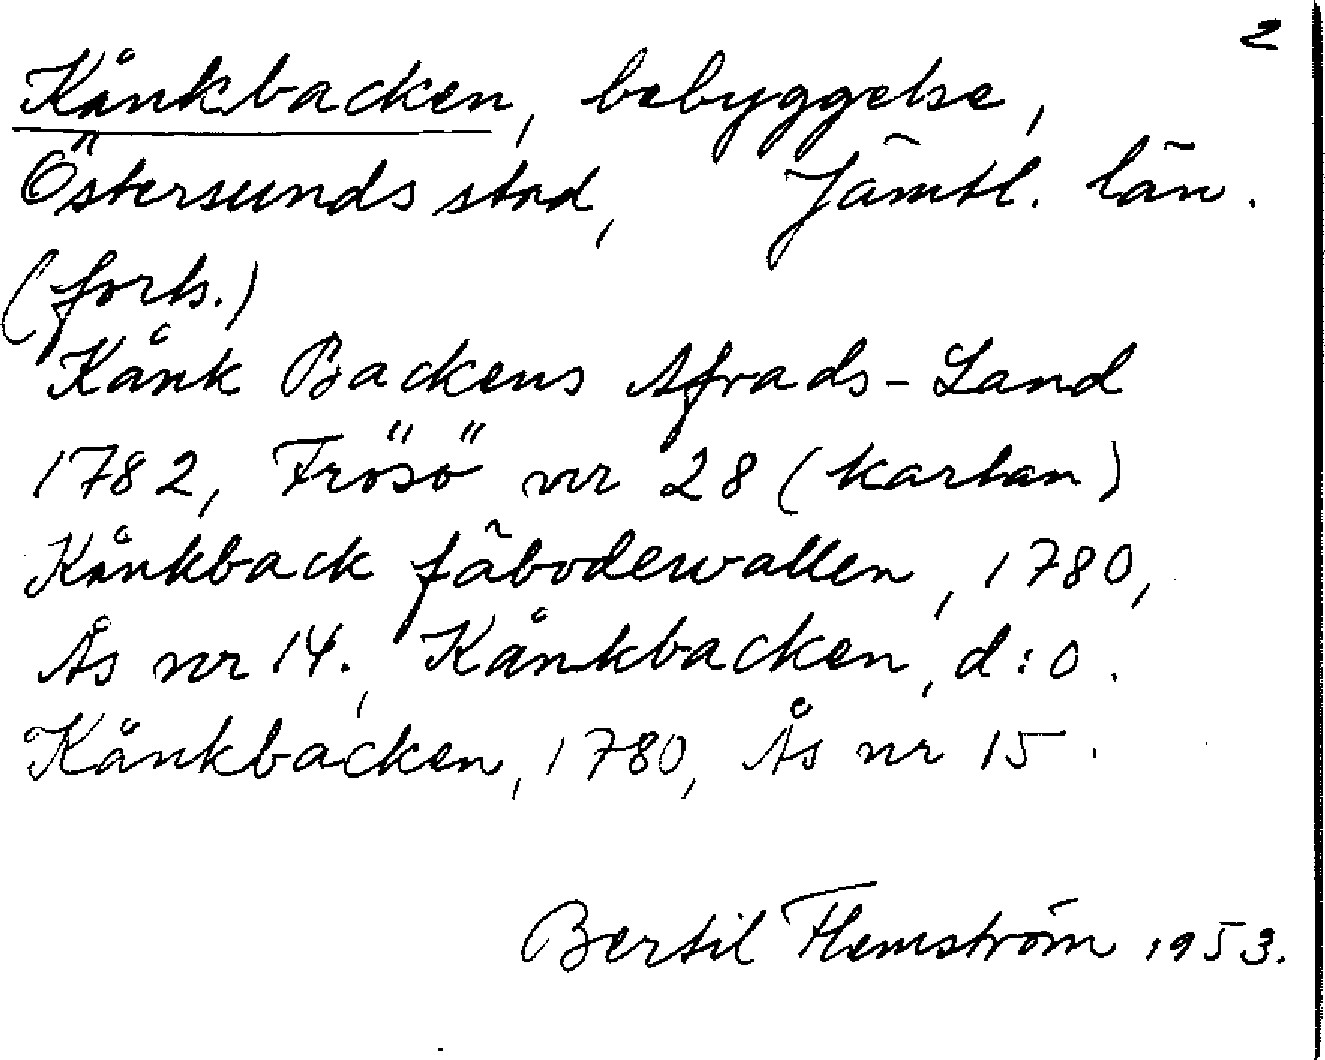 2
Kånkbacken, bebyggelse,
Östersunds stad, Jämtl. län.
(forts.)
Kånk Backens Afrads-Land
1782, Frösö nr 28 (kartan)
Kånkback fäbodewallen, 1780,
Ås nr 14., Kånkbacken, d:o.
Kånkbacken, 1780, Ås nr 15.
Bertil Flemström 1953.